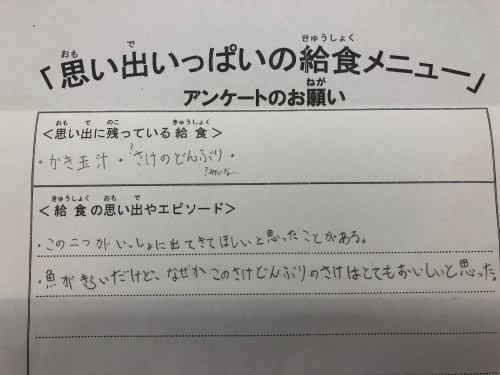 「思い出いっぱいの給食メニュー」
アンケートのお願い
<思い出に残っている給食>
・かき玉汁 ・さけのどんぶり・
?みたいな
<給食の思い出やエピソード>
・この二つがいっしょに出てきてほしいと思ったことがある。
・魚がきらいだけど、なぜかこのさけどんぶりのさけはとてもおいしいと思った。